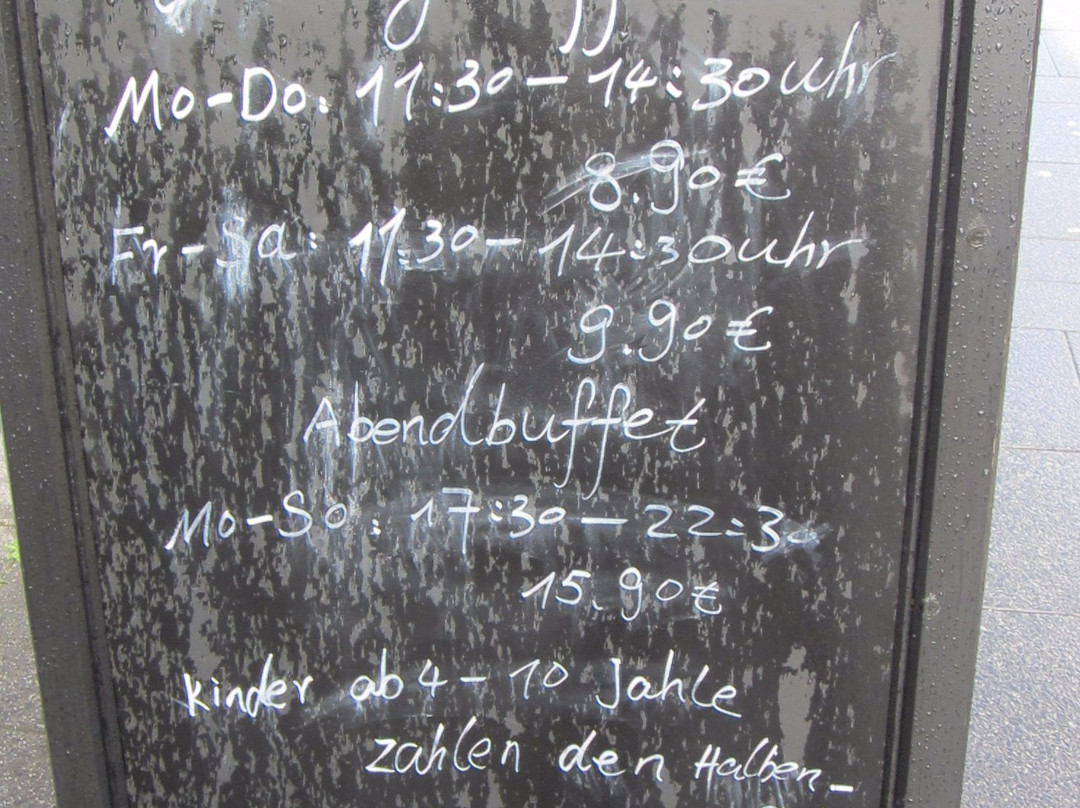 Mo-Do: 11:30 - 14:30 Uhr
8.90 €
Fr-Sa: 11:30 - 14:30 Uhr
9.90 €
Abendbuffet
Mo-So: 17:30 - 22:30
15.90 €
Kinder ab 4 - 10 Jahle
zahlen den Halben-